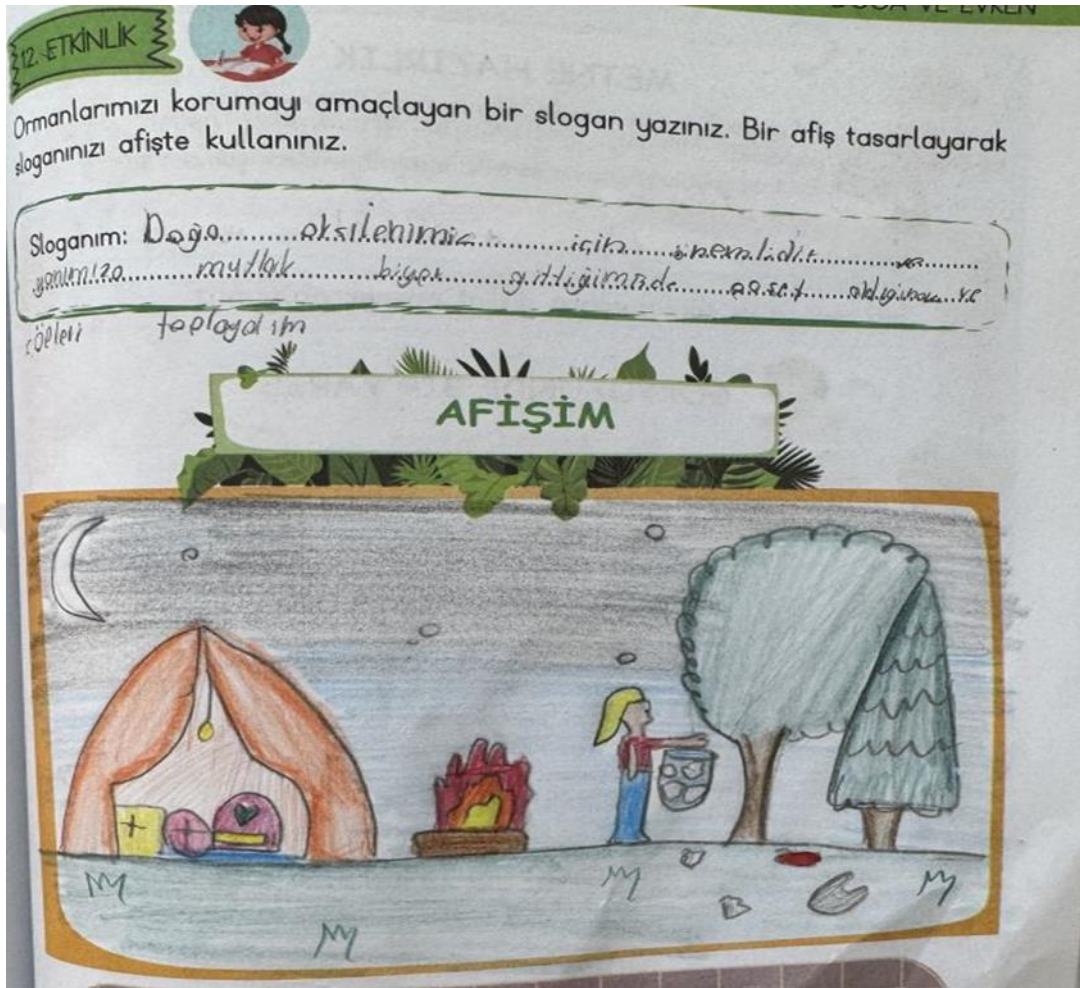 DOĞA VE EVREN
12. ETKİNLİK
Ormanlarımızı korumayı amaçlayan bir slogan yazınız. Bir afiş tasarlayarak
sloganınızı afişte kullanınız.
Sloganım: Doğa için önemlidir ve
yanımıza mutlak gittiğimizde poşet ve
çöpleri toplayalım
AFİŞİM